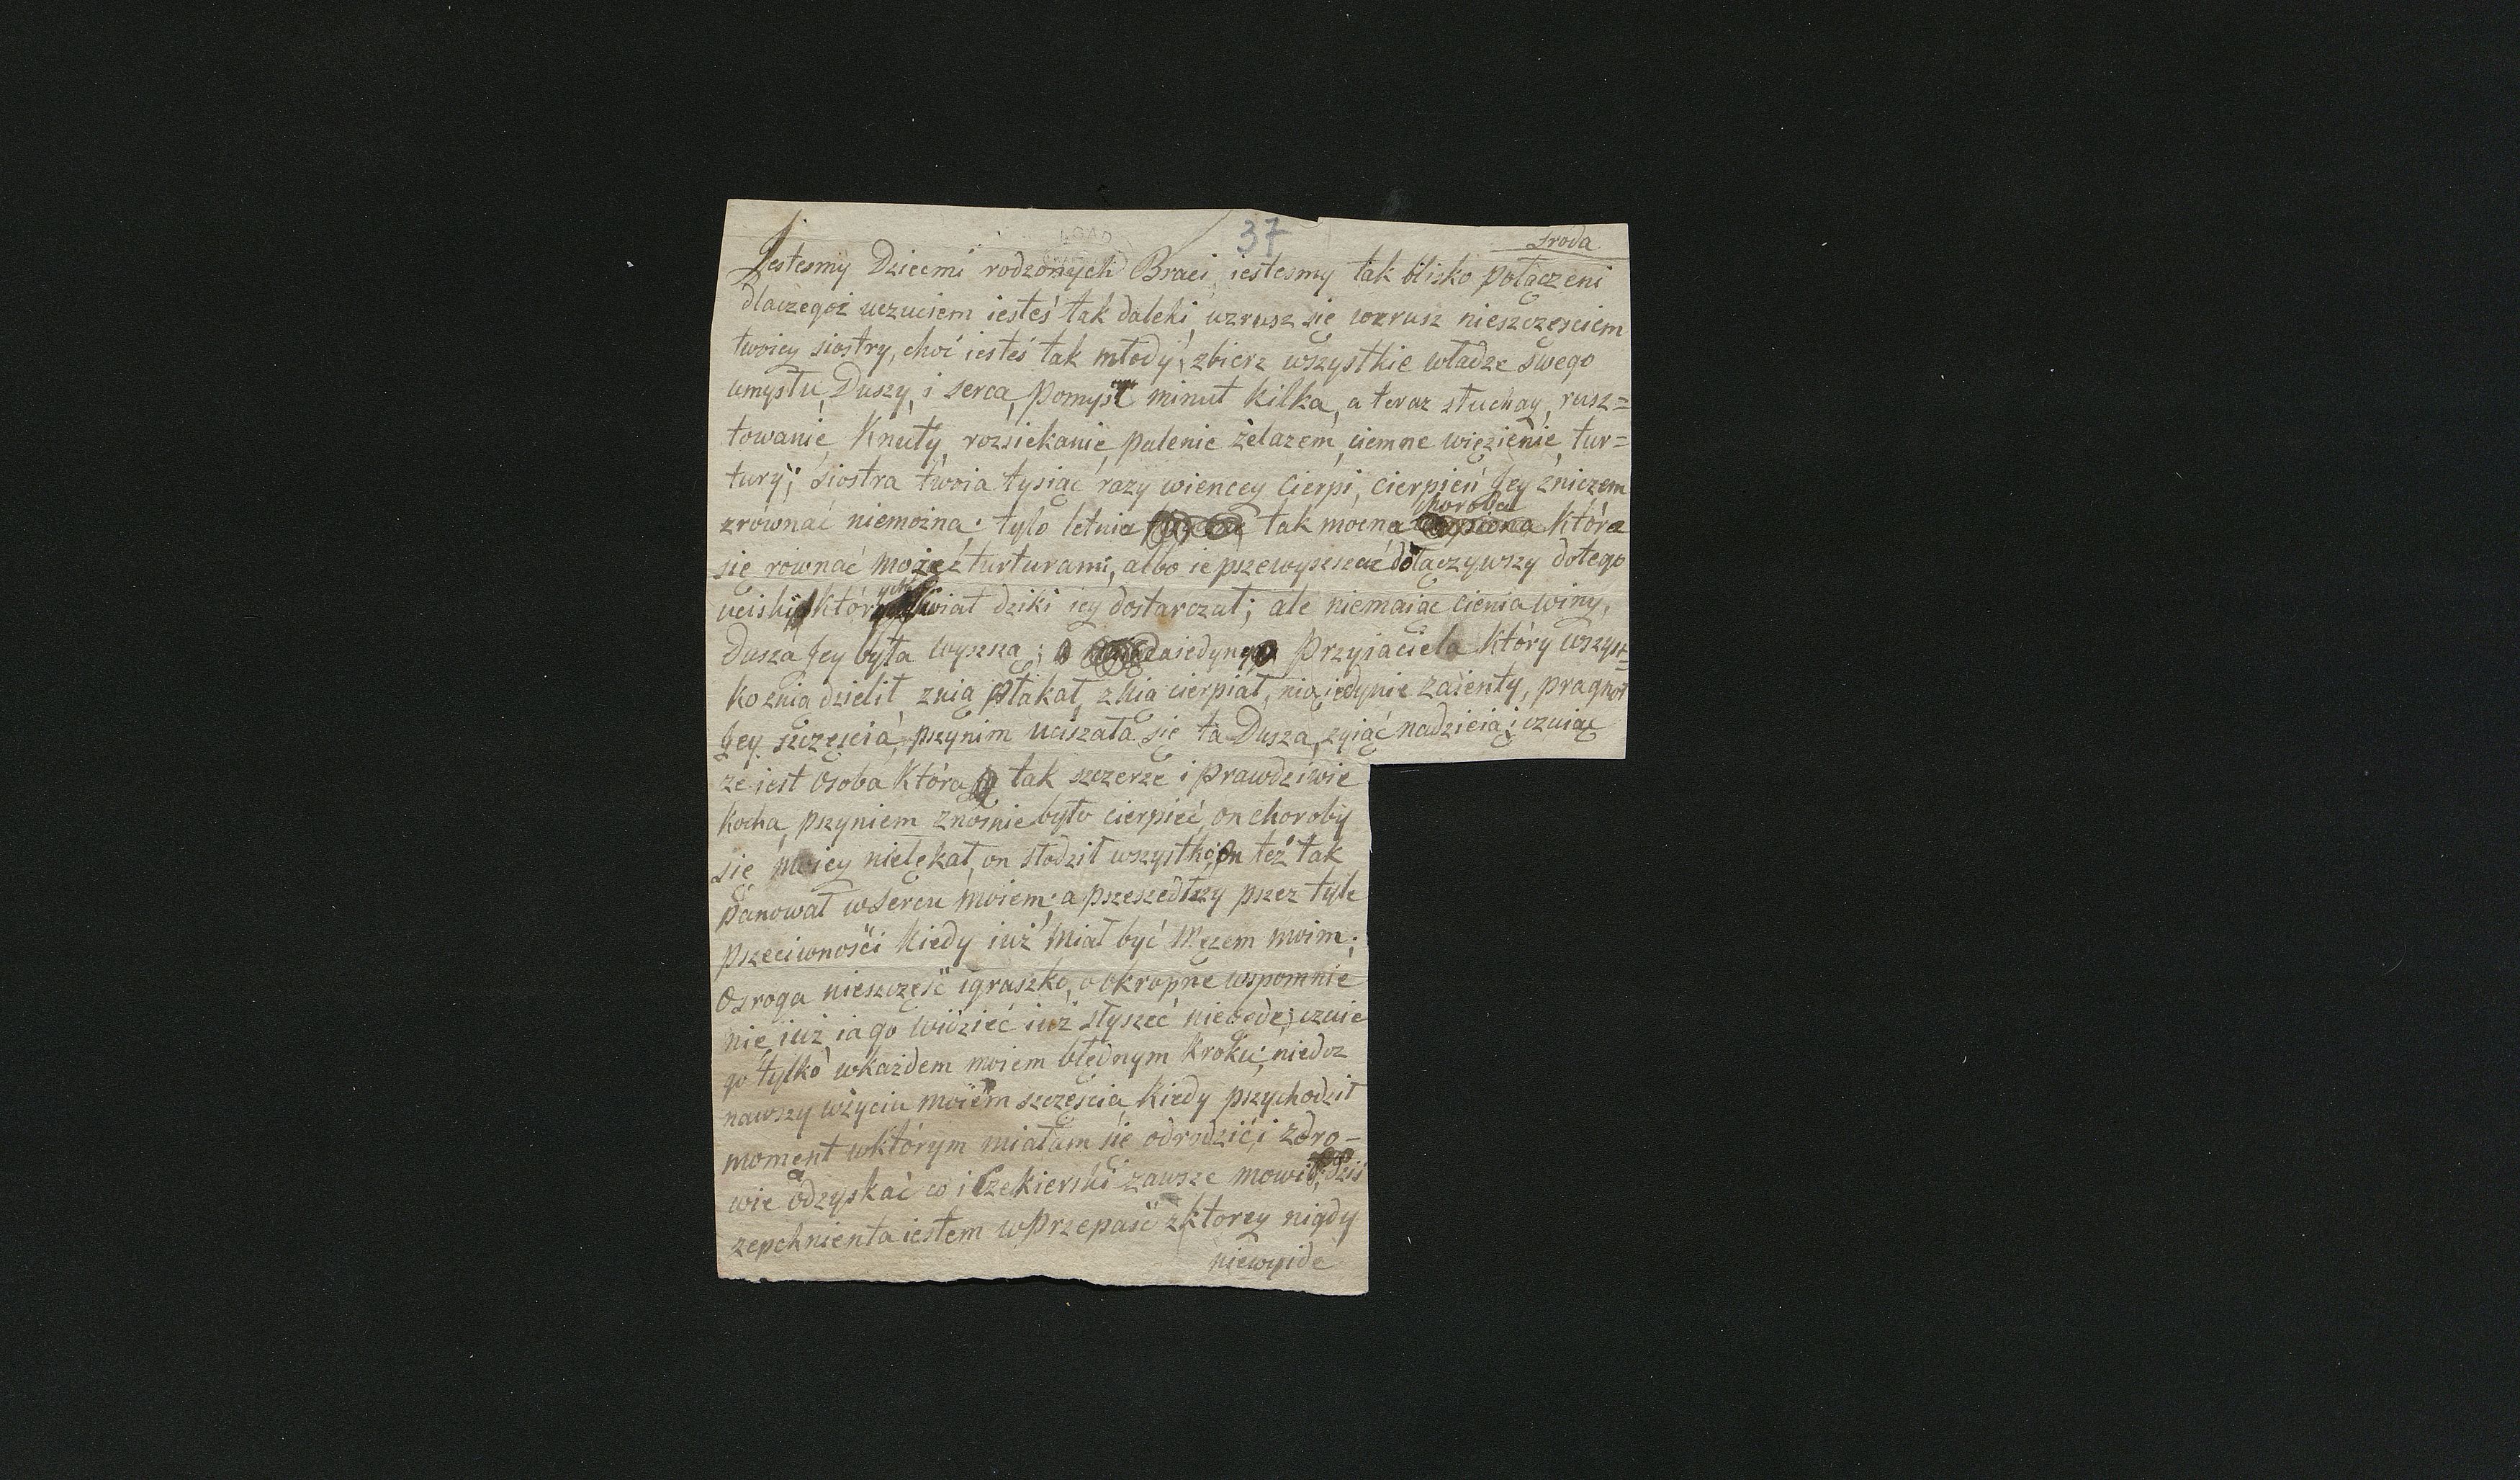 37
Sroda
Jestesmy Dziecmi rodzonych Braci, iestesmy tak blisko połączeni
dlaczegoż uczuciem iesteś tak daleki, wzrusz się wzrusz nieszczęsciem
twoiey siostry, choć iesteś tak młody, zbierz wszystkie władze swego
umysłu, Duszy, i serca, pomysl minut kilka, a teraz słuchay, rusz=
towanie, Knuty, rozsiekanie, palenie żelazem, ciemne więzienie, tur=
tury; siostra twoia tysiąc razy wiencey cierpi, cierpień Jey zniczem
zrównać niemożna; tylo letnia tak mocna choroba która
się równać może z turturami, albo ie pszewyszszać dołączywszy dotego
uciski, które świat dziki iey dostarczał; ale niemaiąc cienia winy,
Dusza Jey była wyszsza; iedynego Przyiaciela który wszyst=
ko znią dzielił, znią płakał, znią cierpiał, nią iedynie zaięnty, pragnoł
Jey szczęścia, pszynim uciszała się ta Dusza, zyiąc nadzieią i czuiąc
że iest Osoba która tak szczerze i prawdziwie
kocha, pszyniem znośnie było cierpieć, on choroby
się moiey nielękał, on słodził wszystko, on też tak
panował wsercu moiem; a pszeszedłszy pszez tyle
pszeciwności kiedy iuż miał być Mężem moim;
O sroga nieszczęść igraszko, o okropne wspomnie
nie, iuż ia go widzieć iuż słyszeć niebęde; czuie
go tylko wkażdem moiem błędnym kroku; niedoz
nawszy wżyciu moiem szczęścia, kiedy pszychodził
moment wktórym miałam się odrodzić, i zdro-
wie odzyskać co i Czekierski zawsze mowił, dziś
zepchnienta iestem w Przepaść z ktorey nigdy
niewyide